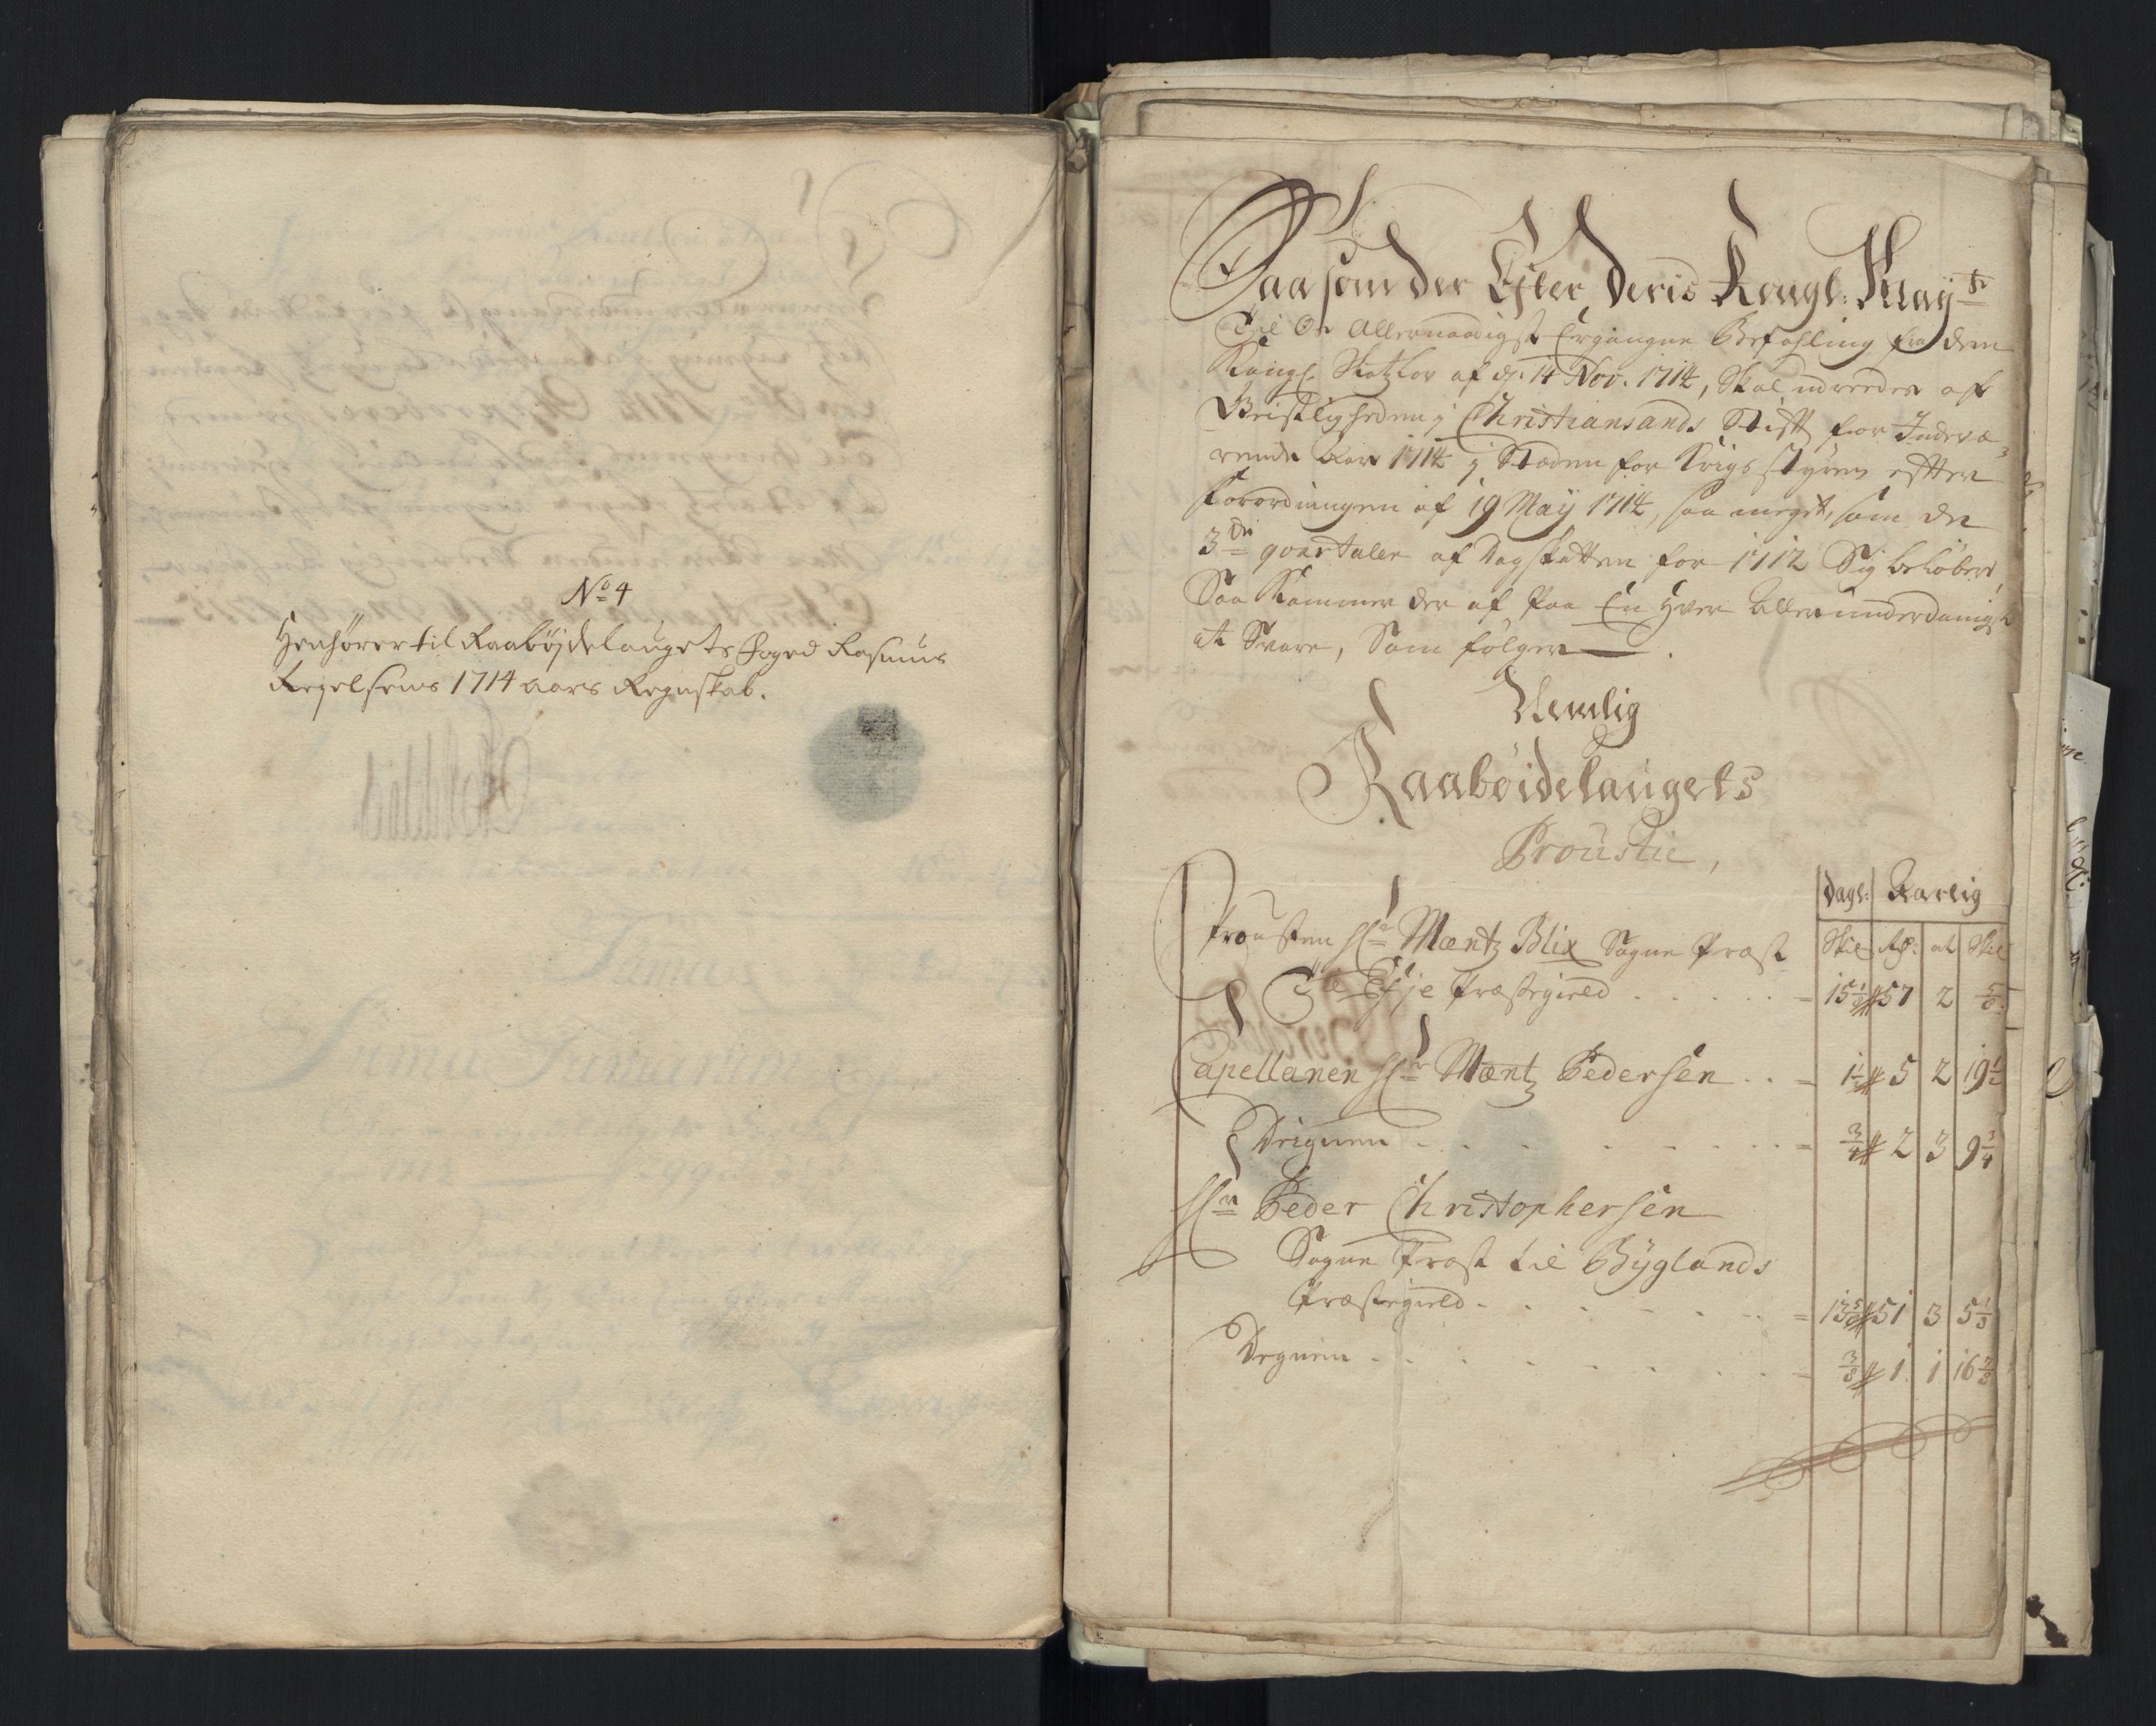 No 4
Henhører til Raabøjdelaugets Foged Rasmus
Regelsens 1714 aars Regnskab.
Saasom der Efter Deris Kongl: May.ts
Til Os Allernaadigst Ergangne Befahling fra dem
Kongl. Skatzlov af d. 14 Nov. 1714, Skal udreedes af
Geistligheden j Christiansands Stift for Indevæ-
rende Aar 1714 j Stæden for Krigs styren efter
forordningen af 19 May 1714, saa meget, som de
3de qvartaler af Dagskatten for 1712 Sig beløber,
Saa Kommer der af Paa En hver Allerunderdanigst
at Svare, Som følger
Nemlig
Raabøidelaugets
Proustie,
Dagl: Aarlig
Prousten Hr Mentz Blix Sogne Præst Skil Rd: ort Skil
Til Efje Præstegield 15 57 2
Capellanen Hr Mentz Pedersen 5 2 19½
Deignen ¾ 2 3 9¾
Hr Peder Christophersen
Sogne Præst til Byglands
Præstegield 51 3
Degnen ⅜ 1 1 16